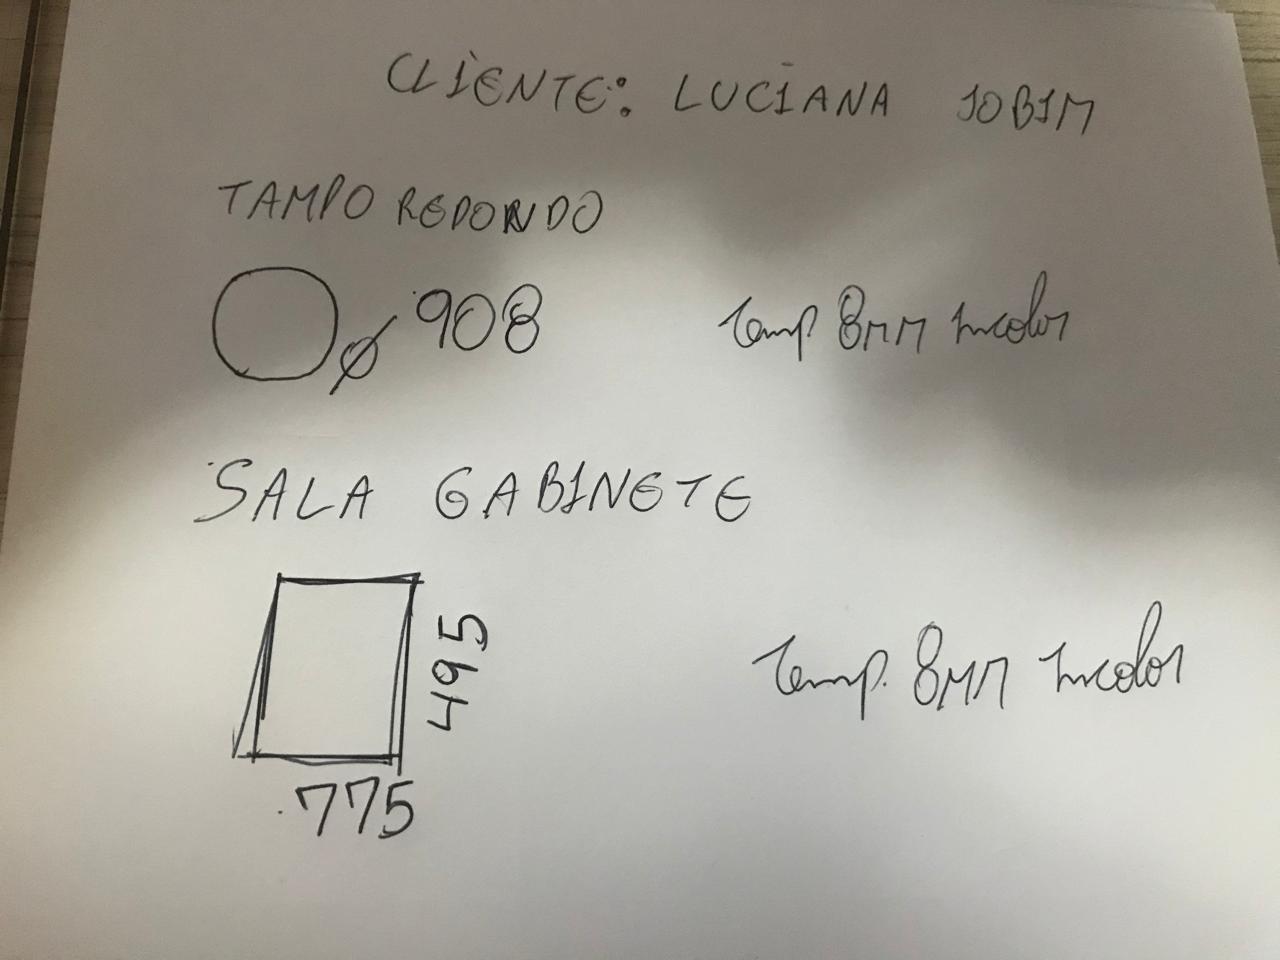 CLIENTE: LUCIANA JOBIM
TAMPO REDONDO
Ø 908 Temp 8MM Incolor
SALA GABINETE
495
Temp. 8MM Incolor
775